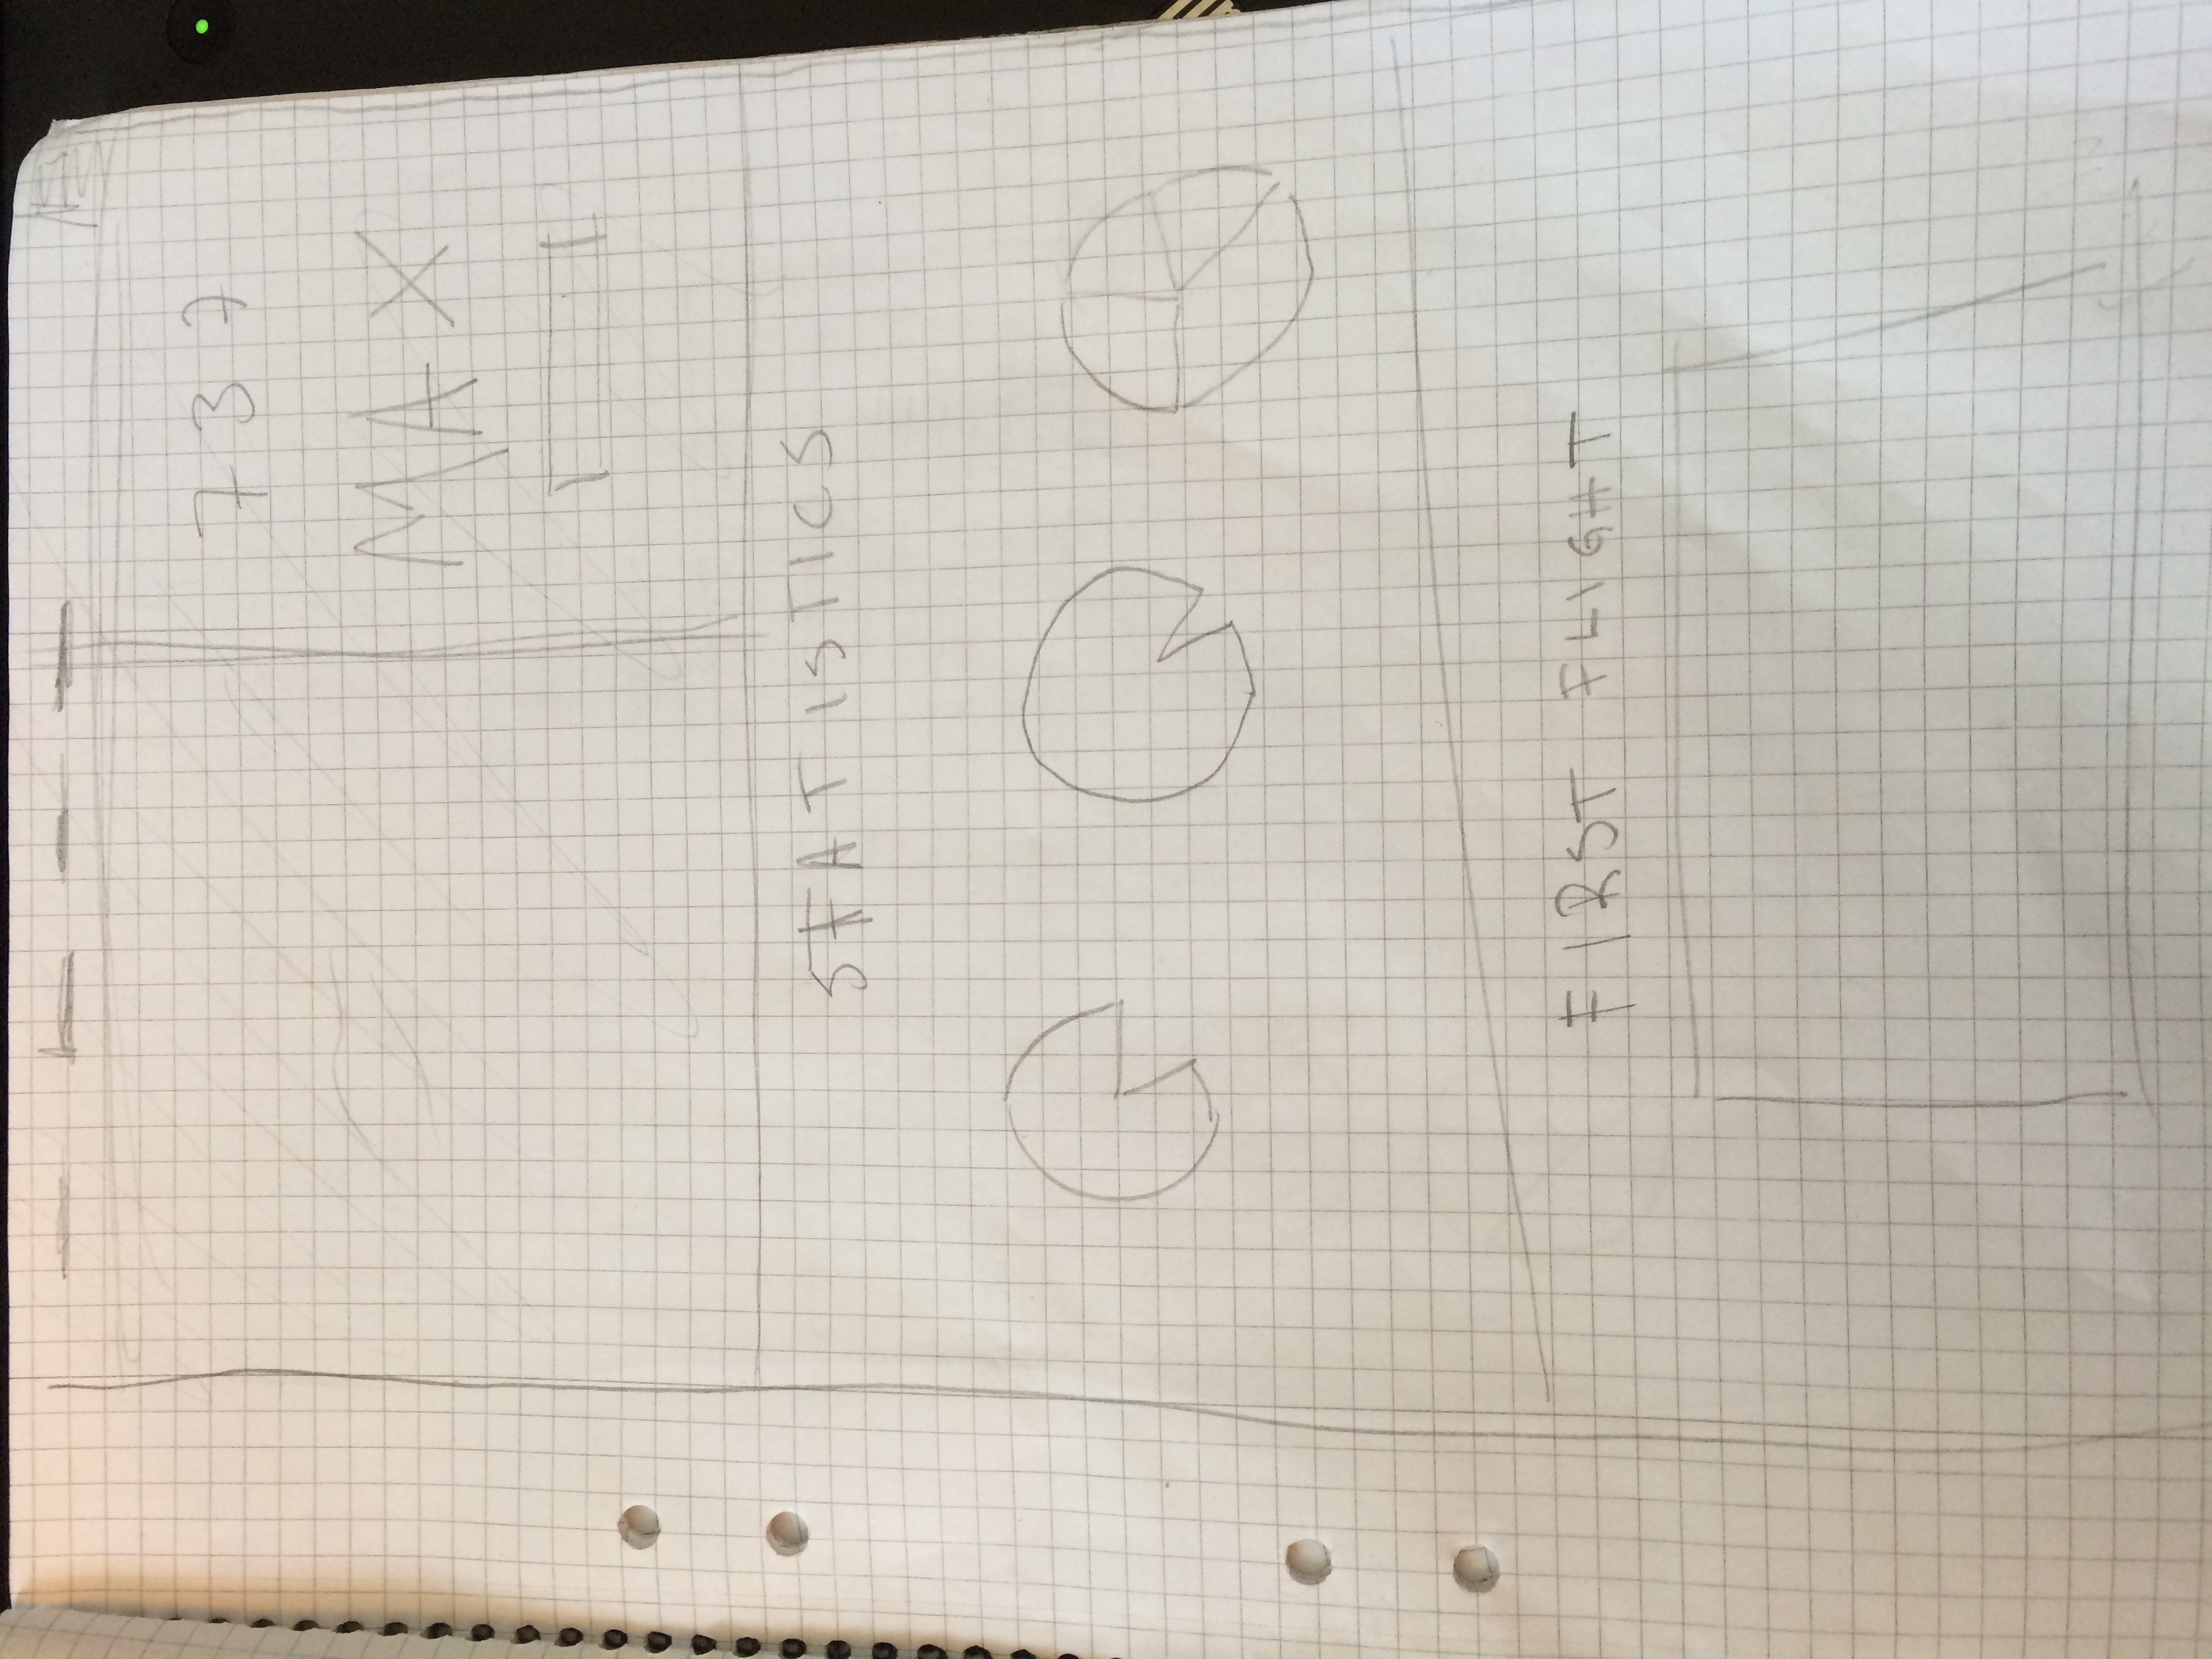 737
MAX
STATISTICS
FIRST FLIGHT